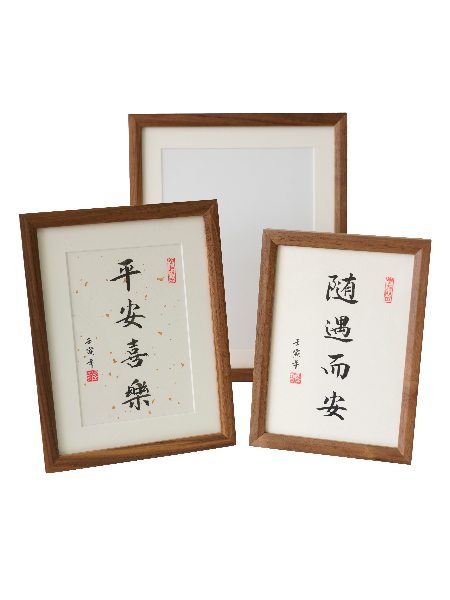 平安喜樂
壬寅年
随遇而安
壬寅年